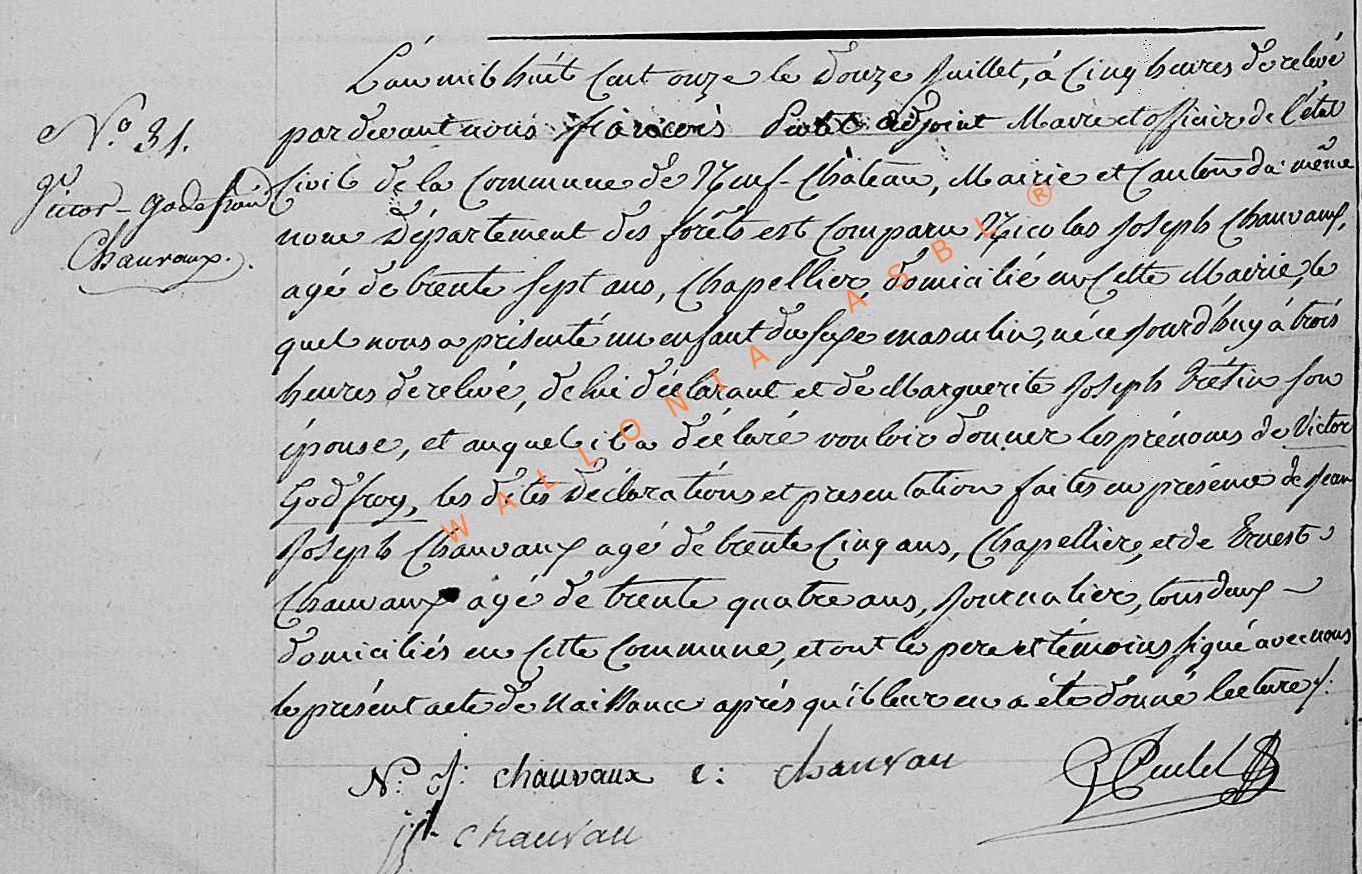 L'an mil huit Cent onze le Douze Juillet, à Cinq heures de relevé
N.o 31.
par devant nous françois adjoint Maire et officier de l'état
Victor - Godefroid
Chauvaux.
Civil de la Commune de Neuf-Château, Mairie et Canton du même
nom Département des forêts est Comparu Nicolas Joseph Chauvaux,
agé de trente Sept ans, Chapellier, domicilié en Cette Mairie, le
quel nous a présenté un enfant du sexe masculin, né ce Jourd'huy à trois
heures de relevé, de lui déclarant et de Marguerite Joseph son
épouse, et auquel il a déclaré vouloir donner les prénoms de Victor
Godfroy, les dites Déclarations et presentation faites en présence de Jean
Joseph Chauvaux agé de trente Cinq ans, Chapellier, et de Ernest
Chauvaux agé de trente quatre ans, Journalier, tous deux
domiciliés en Cette Commune, et ont le pere et témoins signé avec nous
le présent acte de Naissance après qu'il leur en a été donné lecture
N. J: chauvaux e: chauvau
chauvau
WALLONIA ASBL ®